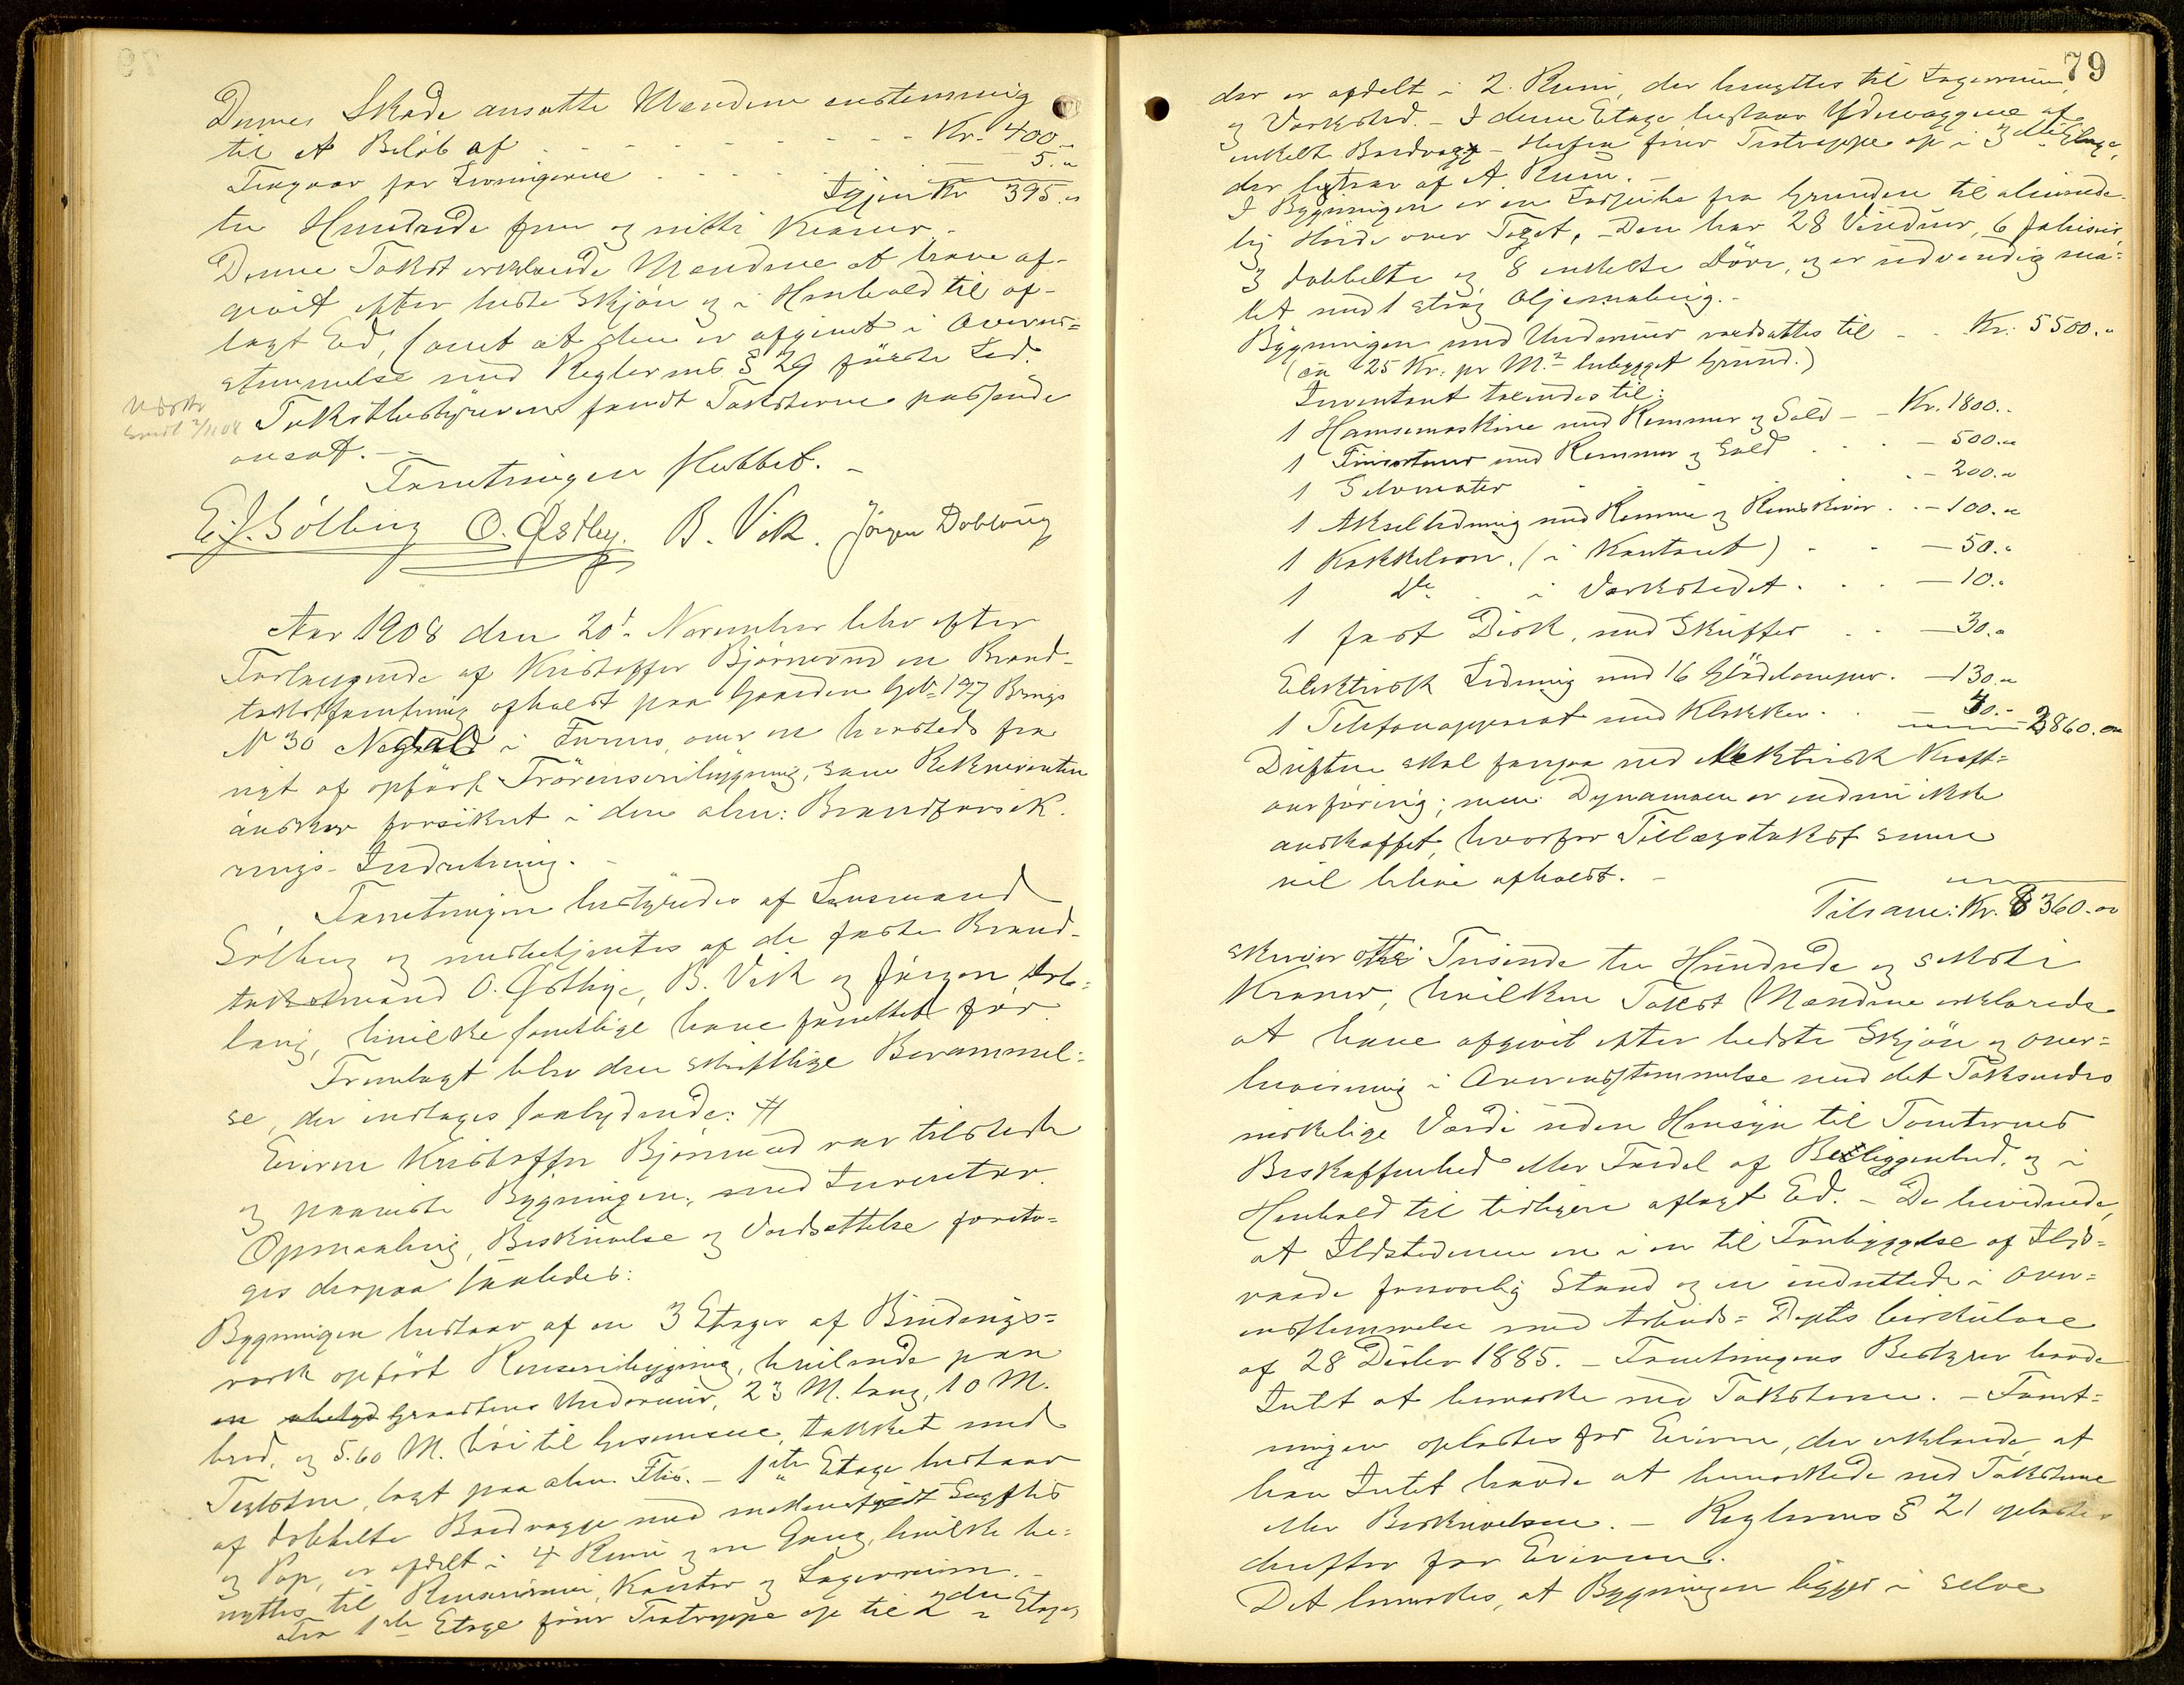 Denne Skade ansatte Mændene enstemmig
til et Beløb af - - - - Kr. 400.-
Fragaar for Levningerne - - - - 5.-
Igjen Kr 395.-
tre Hundrede fem og nitti Kroner.-
Denne Takst erklærede Mændene at have af-
givet efter bedste Skjøn og i Henhold til af-
lagt Ed, samt at den er afgivet i Overens=
stemmelse med Reglernes § 29 første Led.
Takstbestyreren fandt Taksterne passende
ansat.-
Forretningen sluttet.-
E. J. Sölberg O. Østbye. B. Vik. Jörgen Doblaug
Aar 1908 den 20de November blev efter
Forlangende af Kristoffer Bjørnerud en Brand-
takstforretning afholdt paa Gaarden Gbr 197 Brugs
N 30 Nygaard i Furnes, over en hersteds fra
nyt af opført Frørenseribygning, som Rekvirenten
ønsker forsikret i den alm: Brandforsik.
rings-Indretning.-
Forretningen bestyredes af Lensmand
Sölberg og medbetjentes af de faste Brand-
takstmænd O. Østbye, B. Vik og Jörgen Dob=
laug, hvilke samtlige have forrettet før.
Fremlagt blev den skriftlige Berammel=
se, der indtages saalydende: #
Eieren Kristoffer Bjørnerud var tilstede
og paaviste Bygningen, med Inventar.
Opmaaling, Beskrivelse og Værdsættelse foreto-
ges derpaa saaledes:
Bygningen bestaar af en 3 Etages af Bindings=
verk opført Renseribygning, hvilende paa
en Graastens Undermur, 23 M. lang, 10 M.
bred, og 5.60 M. høi til Gesimsene, takket med
Teglsten, lagt paa alm. Flis.- 1ste Etage bestaar
af dobbelte Bordvægge med mellemfyldt Sagflis
og Pap, er afdelt i 4 Rum og en Gang, hvilke be=
nyttes til Renserirum, Kontor og Lagerrum.-
Fra 1ste Etage fører Trætrappe op til 2den Etage,
79
der er afdelt i 2 Rum, der benyttes til Lagerrum,
og Værksted.- I denne Etage bestaar Ydervæggene af
enkelt Bordvæg - Herfra fører Trætrappe op i 3die Etage,
der bestaar af et Rum.-
I Bygningen er en Ildpibe fra Grunden til alminde-
lig Høide over Taget, - Den har 28 Vinduer, 6 Jalusier,
3 dobbelte og 8 enkelte Døre, og er udvendig ma=
let med 1 strøg Oljemaling.-
Bygningen med Undermur værdsattes til - - Kr. 5500.-
(ca 25 Kr. pr M.2 bebygget Grund.)
Inventaret taxeredes til:
1 Hamsemaskine med Remmer og Sold - - Kr. 1800.-
1 med Remmer og Sold - - - 500.-
1 - - 200.-
1 Akselledning med Remme og Remskiver - - 100.-
1 Kakkelovn. (i Kontoret) - - - 50.-
1 Do - i Værkstedet - - - 10.-
1 fast Disk, med Skuffer - - 30.-
Elektrisk Ledning med 16 Glødelamper. - 130.-
1 Telefonapparat med Klokker - - 40.- - 2860.-
Driften skal foregaa ved elektrisk Kraft=
overføring; men Dynamoen er endnu ikke
anskaffet, hvorfor Tillægstakst senere
vil blive afholdt.-
Tilsam: Kr. 8360.-
skriver otte Tusinde tre Hundrede og seksti
Kroner, hvilken Takst Mændene erklærede
at have afgivet efter bedste Skjøn og over=
bevisning i Overensstemmelse med det Takseredes
virkelige Værdi uden Hensyn til Tomternes
Beskaffenhed eller Fordel af Beliggenhed, og i
Henhold til tidligere aflagt Ed.- De bevidnede,
at Ildstederne er i en til Forebyggelse af Ilds-
vaade forsvarlig Stand og er indrettede i Over=
ensstemmelse med Arbeids=Depts Cirkulære
af 28 Decbr 1885.- Forretningens Bestyrer havde
Intet at bemærke ved Taksterne.- Forret=
ningen oplæstes for Eieren, der erklærede at
han Intet havde at bemærke ved Taksterne
eller Beskrivelsen.- Reglernes § 21 oplæstes
derefter for Eieren.
Det bemærkes, at Bygningen ligger i selve